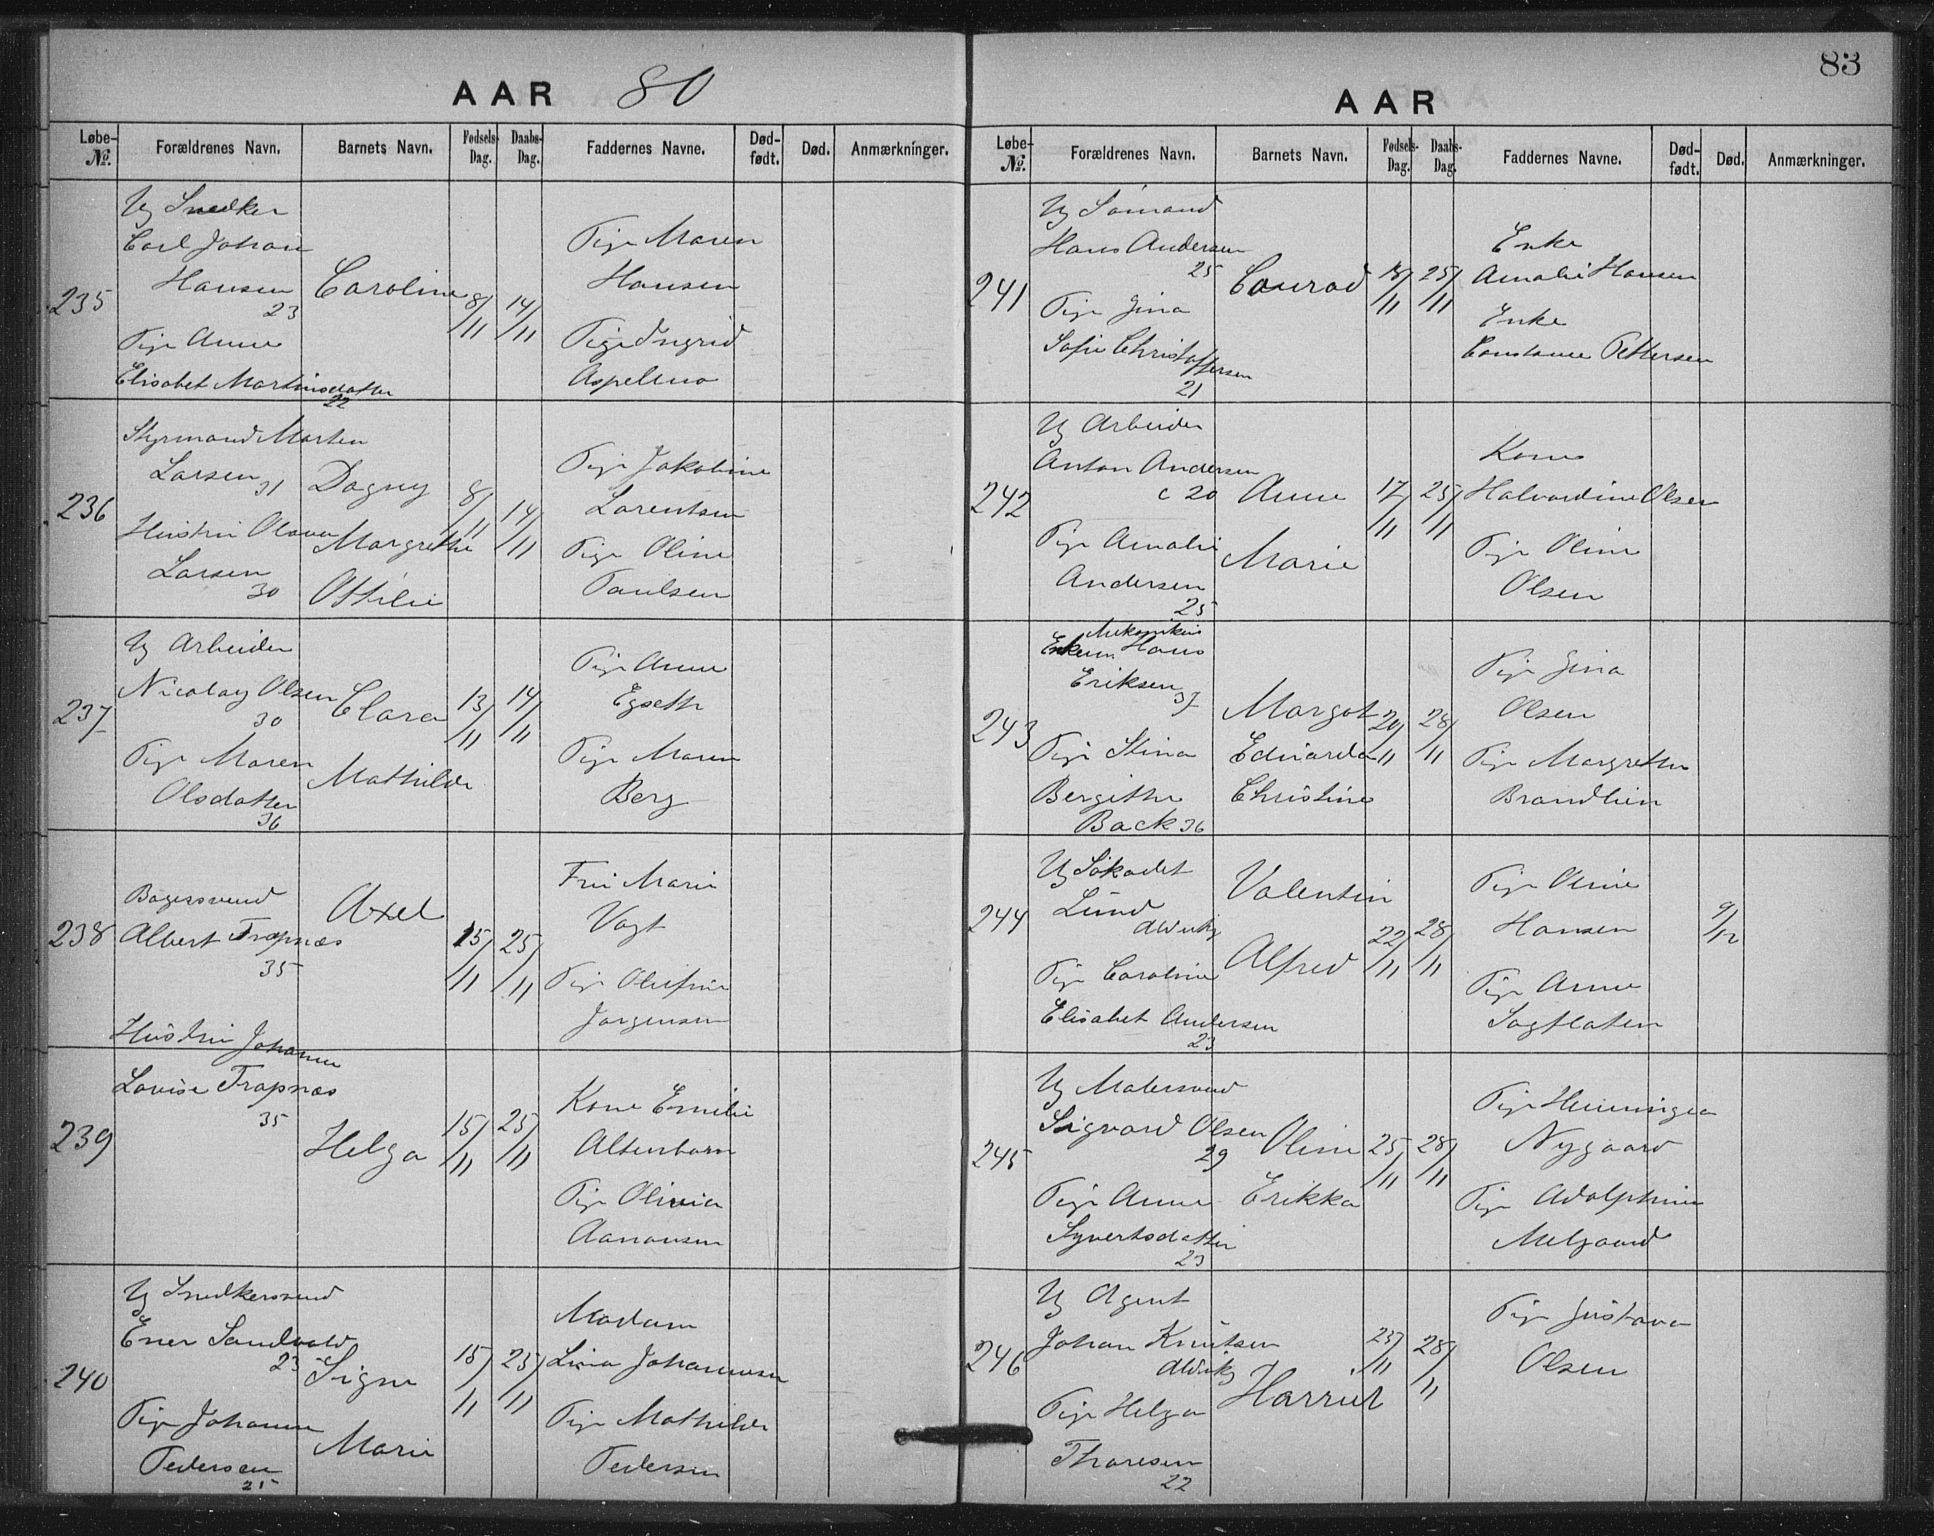 AAR 80
Løbe-No.
Forældrenes Navn.
Barnets Navn.
Fødsels-Dag.
Daabs-Dag.
Faddernes Navne.
Død-født.
Død.
Anmærkninger.
235
Ug Snedker
Carl Johan
Hansen
23
Pige Anne
Elisabet Martinsdatter
22
Caroline
8/11
14/11
Pige Maren
Hansen
Pige Ingrid
236
Styrmand Morten
Larsen 31
Hustru Olava
Larsen
30
Dagny
Margrethe
Ottilie
8/11
14/11
Pige Jakobine
Lorentsen
Pige Oline
Paulsen
237
Ug Arbeider
Nicolay Olsen
30
Pige Maren
Olsdatter
36
Clara
Mathilde
13/11
14/11
Pige Anne
Egseth
Pige Maren
Berg
238
Bagersvend
Albert Trapnæs
35
Hustru Johanne
Lovise Trapnæs
35
Axel
15/11
25/11
Fru Marie
Vogt
Pige Olufine
Jørgensen
239
Helga
15/11
25/11
Kone Emilie
Altenborn
Pige Olivia
Aanonsen
240
Ug Snedkersvend
Ener Sandvold
23
Pige Johanne
Pedersen
25
Signe
Marie
15/11
25/11
Madam
Lina Johannesen
Pige Mathilde
Pedersen
83
AAR
Løbe-No.
Forældrenes Navn.
Barnets Navn.
Fødsels-Dag.
Daabs-Dag.
Faddernes Navne.
Død-født.
Død.
Anmærkninger.
241
Ug Sømand
Hans Andersen
25
Pige Jina
Sofie Christoffersen
21
Conrad
18/11
25/11
Enke
Amalie Hansen
Enke
Constance Pettersen
242
Ug Arbeider
Anton Andersen
c 20
Pige Amalie
Andersen
25
Anne
Marie
17/11
25/11
Kone
Halvardine Olsen
Pige Oline
Olsen
243
Mekanikus
Enkem. Hans
Eriksen 37
Pige Stina
Bergitte
Back 36
Margot
Edvarda
Christine
20/11
28/11
Pige Jina
Olsen
Pige Margrethe
Brandlien
244
Ug Søkadet
Lund
Pige Caroline
Elisabet Andersen
23
Valentin
Alfred
22/11
28/11
Pige Oline
Hansen
Pige Anne
Sagflaten
9/12
245
Ug Malersvend
Sigvard Olsen
29
Pige Anne
Syvertsdatter
23
Oline
Erikka
25/11
28/11
Pige Henningea
Nygaard
Pige Adolphine
Melgaard
246
Ug Agent
Johan Knutsen
Pige Helga
Thoresen
22
Harriet
23/11
28/11
Pige Gustava
Olsen